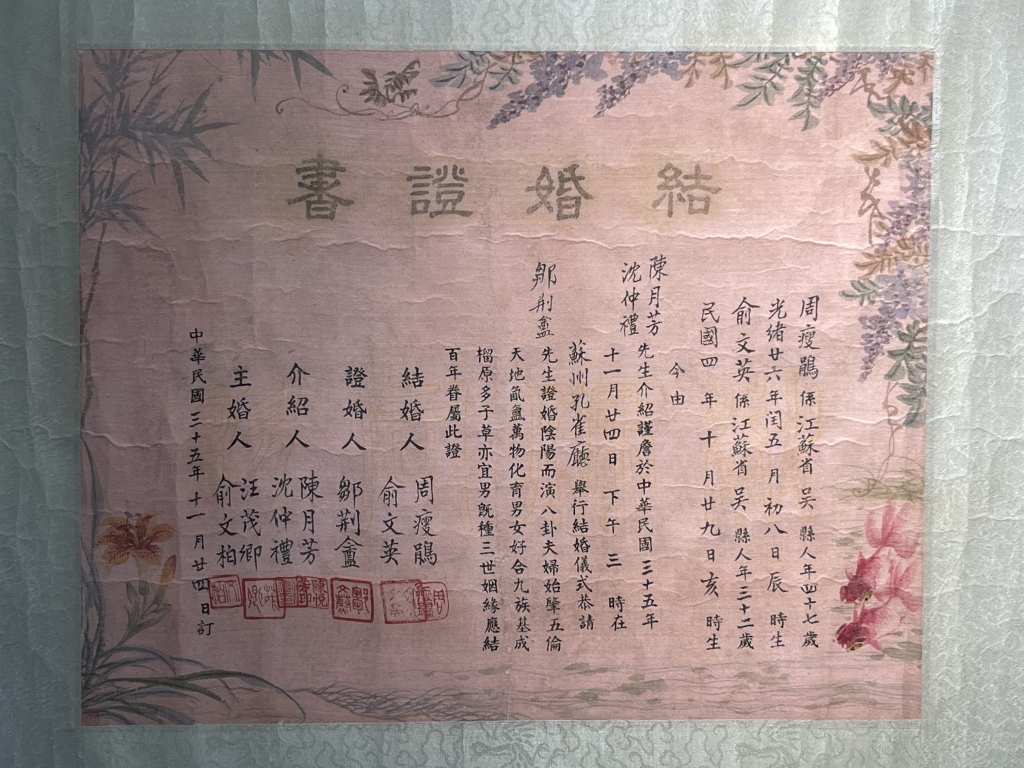 結婚證書
周瘦鵑係江蘇省吳縣人年四十七歲
光緒廿六年閏五月初八日辰時生
俞文英係江蘇省吳縣人年三十二歲
民國四年十月廿九日亥時生
今由
陳月芳
沈仲禮
先生介紹謹詹於中華民國三十五年
十一月廿四日下午三時在
蘇州孔雀廳舉行結婚儀式恭請
鄒荆盦
先生證婚陰陽而演八卦夫婦始肇五倫
天地氤氳萬物化育男女好合九族基成
榴原多子草亦宜男既種三世姻緣應結
百年眷屬此證
結婚人
周瘦鵑
俞文英
證婚人
鄒荆盦
介紹人
陳月芳
沈仲禮
主婚人
汪茂卿
俞文柏
中華民國三十五年十一月廿四日訂